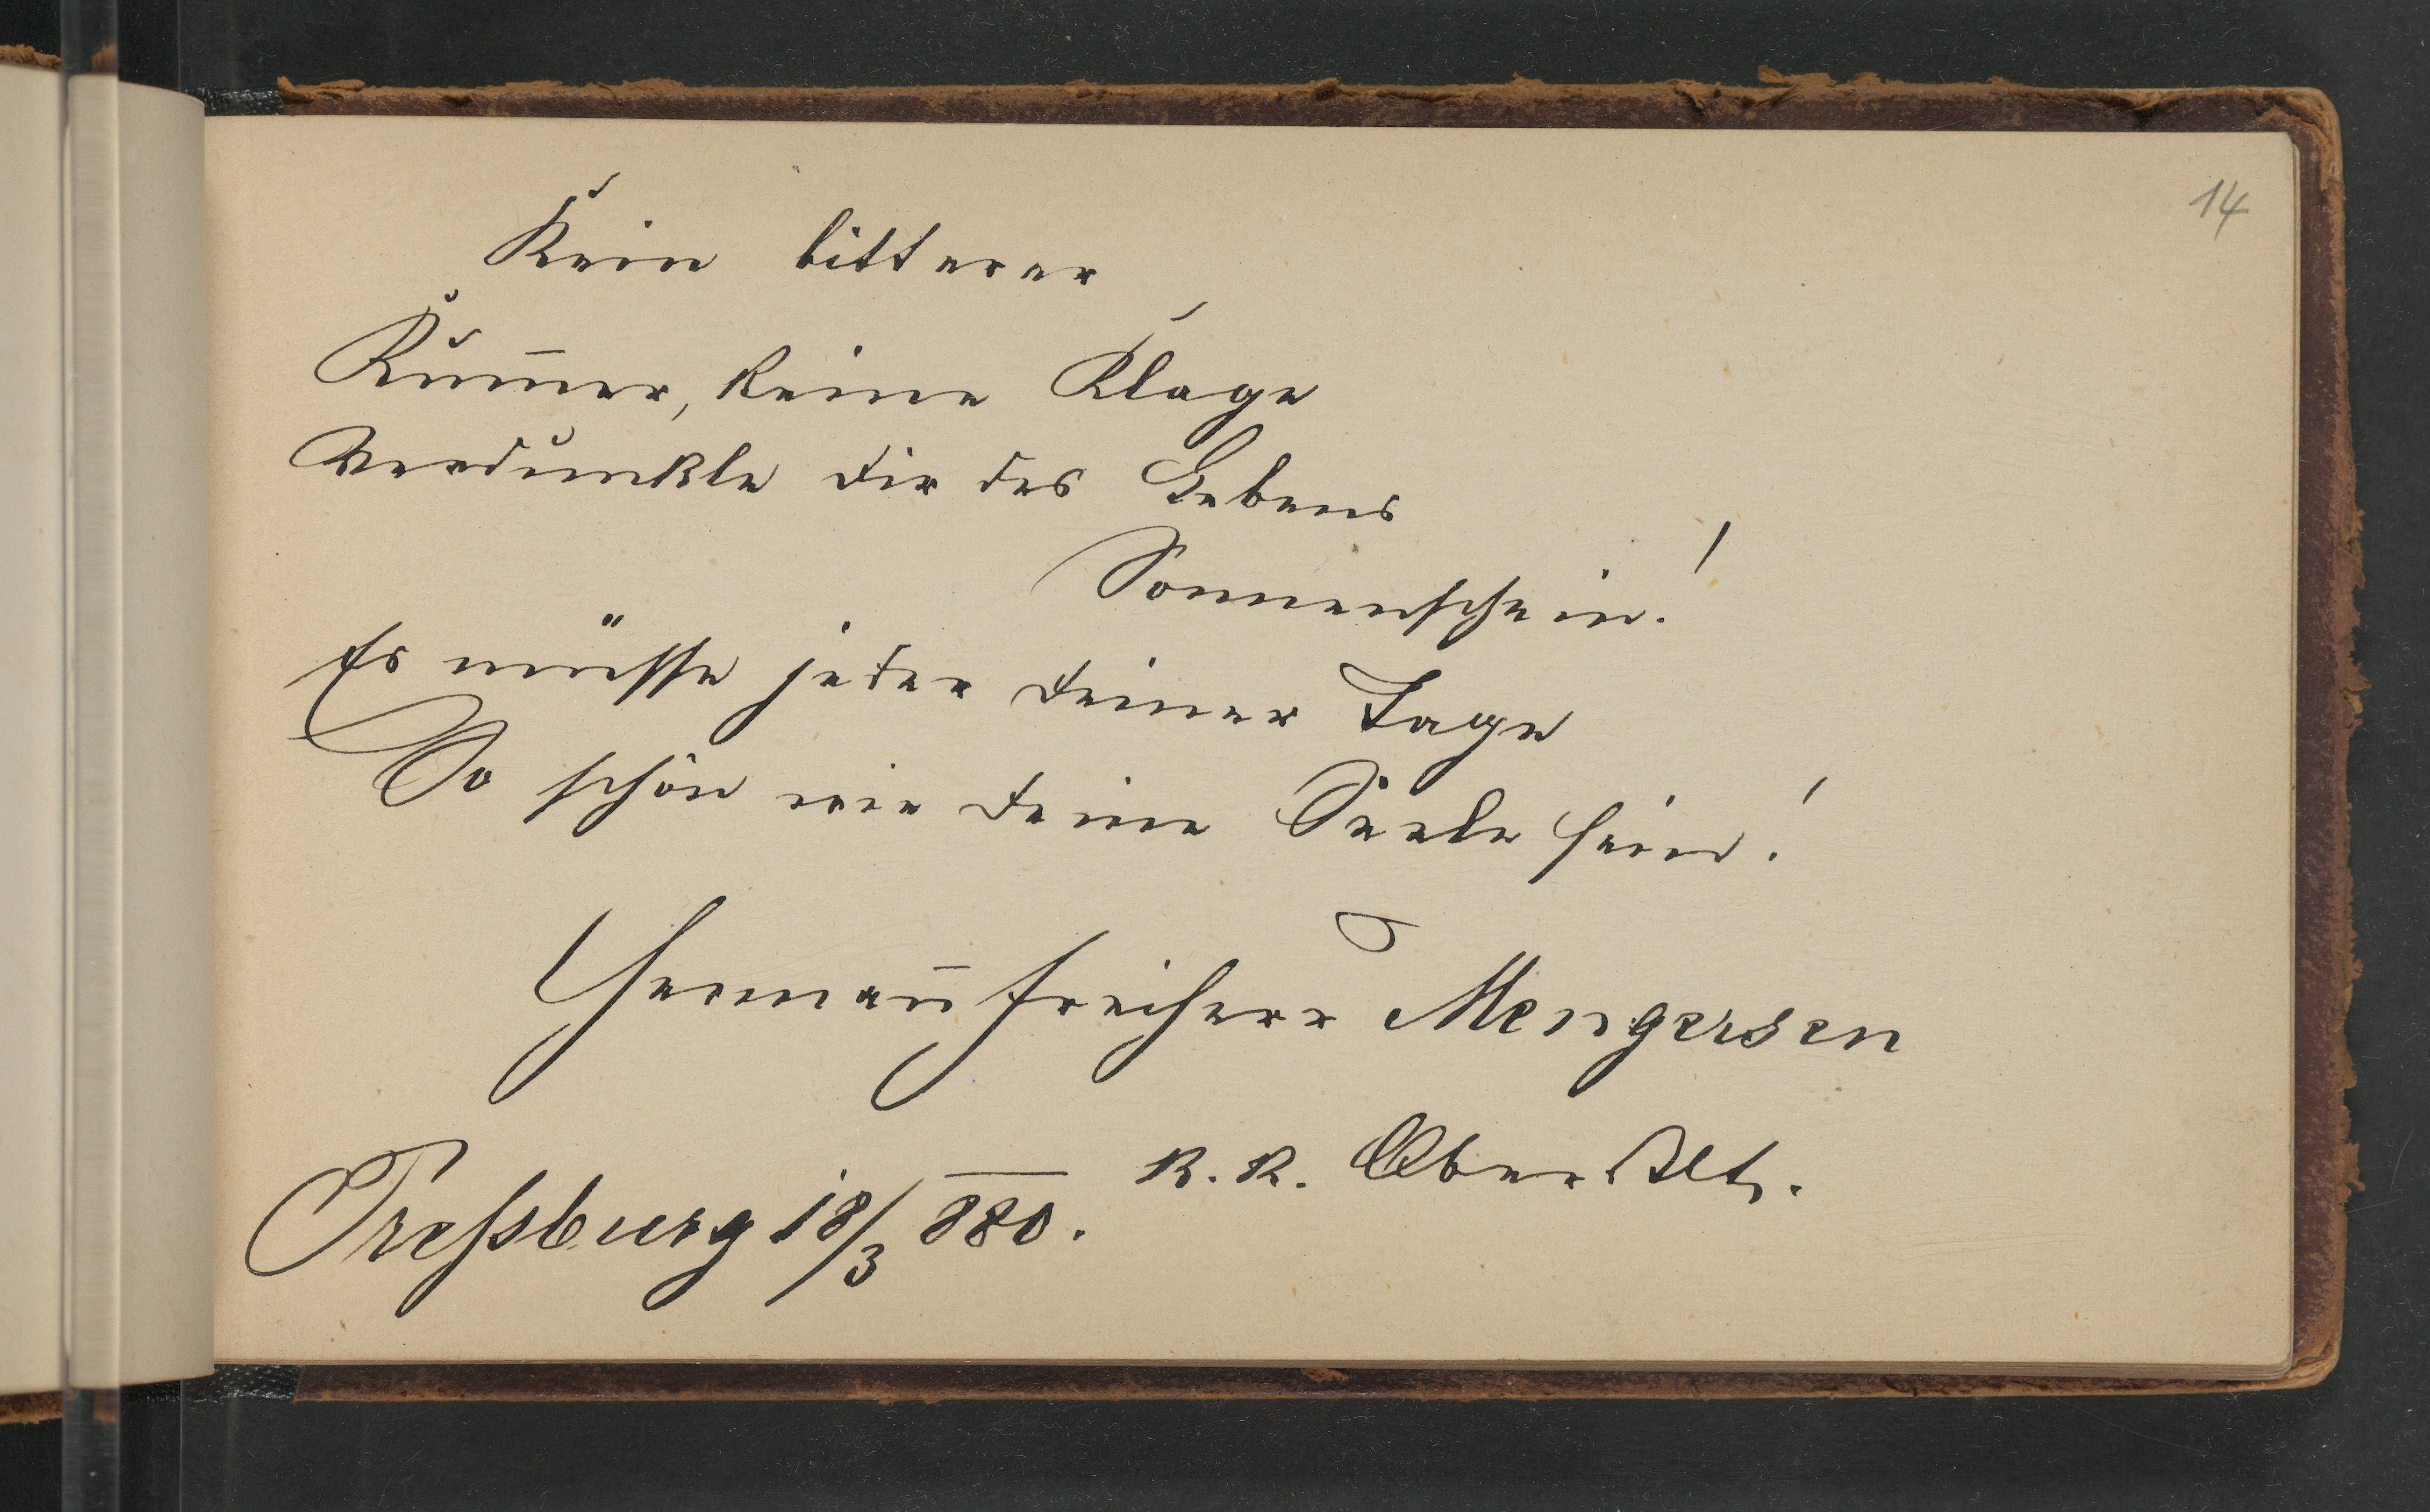 14
Kein bitterer
Kum̅er, keine Klage
Verdunkle dir des Lebens
Sonnenschein!
Es müsse jeder deiner Tage
So schön wie deine Seele sein!
Herman̅ Freiherr Mengersen
k. k. Oberstlt.
Preßsburg 18/3 880.